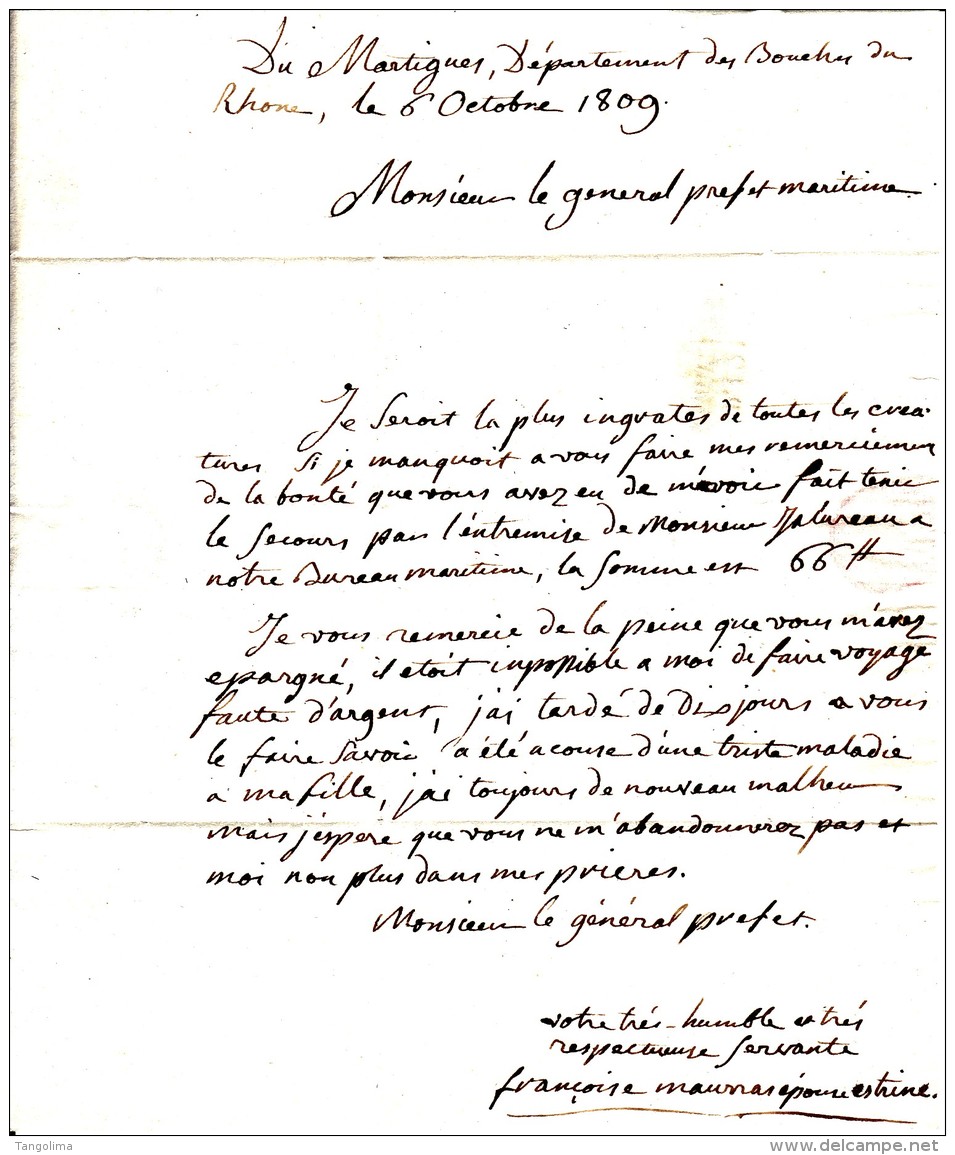 Du Martigues, Département des Bouches du
Rhone, le 6 Octobre 1809.
Monsieur le general prefet maritime.
Je seroit la plus ingrates de toutes les crea-
tures si je manquoit a vous faire mes remerciemen
de la bonté que vous avez eu de m'avoir fait tenir
le secours par l'entremise de Monsieur a
notre Bureau maritime, la somme est 66 ₶
Je vous remercie de la peine que vous m'avez
epargné, il etoit impossible a moi de faire voyage
faute d'argent, j'ai tardé de dix jours a vous
le faire savoir a été a couse d'une triste maladie
a ma fille, j'ai toujours de nouveau malheur
mais j'espere que vous ne m'abandonnerez pas et
moi non plus dans mes prieres.
Monsieur le général prefet.
votre trés-humble et trés
respectueuse servante
françoise maurras épouse estrine.
Tangolima
www.delcampe.net